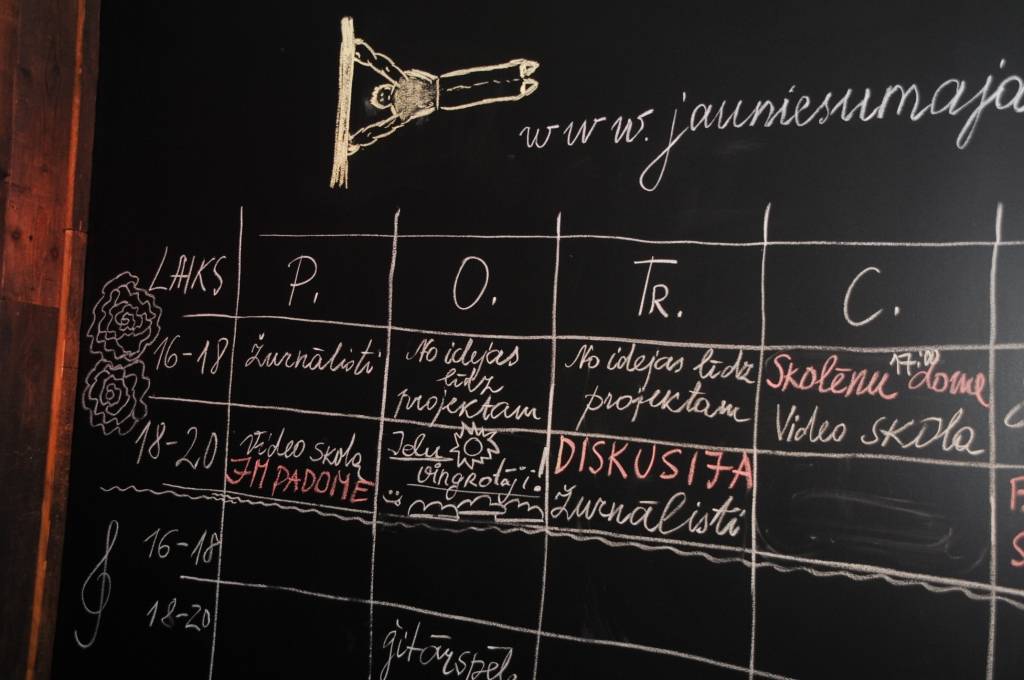 www.jauniesumaja
LAIKS P. O. TR. C.
16-18 Žurnālisti No idejas līdz projektam No idejas līdz projektam Skolēnu 17:00 dome
Video skola
18-20 Video skola Ideju vingrotāji! DISKUSIJA
JM PADOME Žurnālisti
16-18
18-20
ģitārspēl